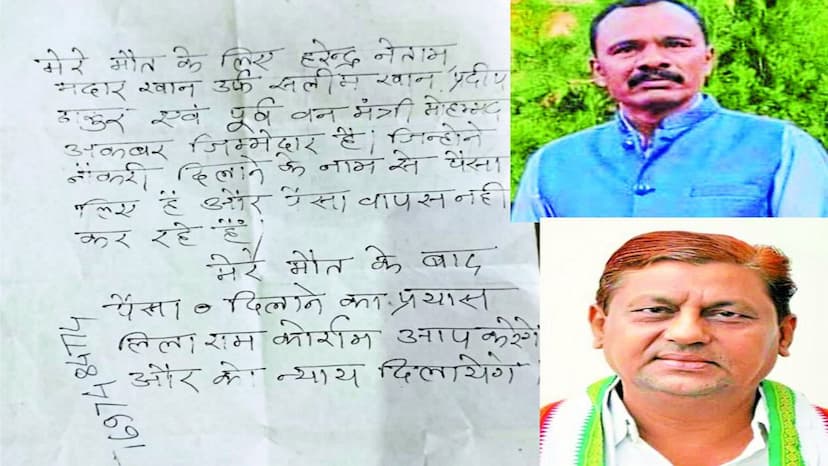 मेरे मौत के लिए हरेन्द्र नेताम
मदार खान उर्फ सलीम खान, प्रदीप
ठाकुर एवं पूर्व वन मंत्री मोहम्मद
अकबर जिम्मेदार है। जिन्होने
नौकरी दिलाने के नाम से पैसा
लिए है और पैसा वापस नही
कर रहे है
मेरे मौत के बाद
पैसा दिलाने का प्रयास
लिलाराम कोर्राम आप करेंगे
और को न्याय दिलायेगे।